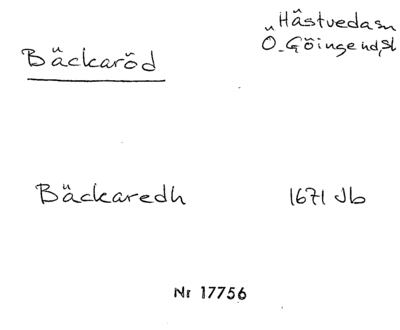 Hästveda sn
Ö. Göinge hd, Sk
Bäckaröd
Bäckaredh 1671 Jb
Nr 17756